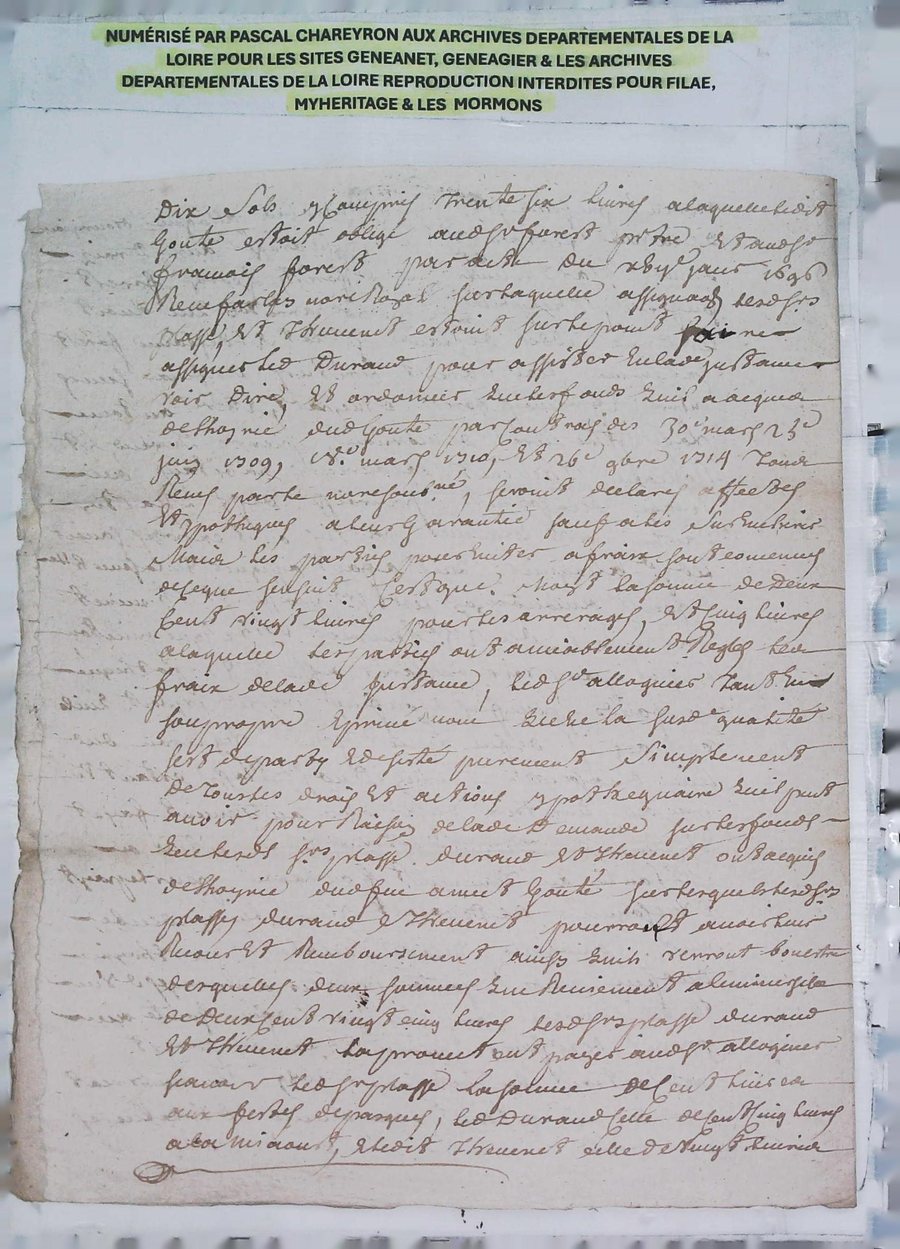 NUMÉRISÉ PAR PASCAL CHAREYRON AUX ARCHIVES DEPARTEMENTALES DE LA
LOIRE POUR LES SITES GENEANET, GENEAGIER & LES ARCHIVES
DEPARTEMENTALES DE LA LOIRE REPRODUCTION INTERDITES POUR FILAE,
MYHERITAGE & LES MORMONS
Dix Sols y Compris Trente six livres a laquelle ledit
Goute estoit obligé audsr forest prtre, Et audsr
francois forest par acte du janr 1696
Receu par notre Royal sur laquelle assignaon lesdsrs
plasse, Et Thevenet estoint sur le point faire
assigner led Durand pour assister en lade Instance
voir Dire, Et ordonner que les fonds quil a acquis
de lhoyrie dud Goute par Contrats des 30e mars 23e
juin 1709, 18e mars 1710, Et 26e 9bre 1714 Tous
Receus par le nore soubné, seroint declarés affectés
Et ypothequés a leur Garantie sauf a les
Mais les parties pour eviter a fraix sont convenues
de ce que sensuit Cest que moyt la somme de Deux
Cent vingt livres pour les arrerages, Et Cinq livres
a laquelle les parties ont amiablement Reglés les
fraix de lade Instance, ledsr allognier Tant en
son propre & privé nom que de la susde qualité
sest departy & desisté purement & Simplement
de Toutes droits Et actions ypothequaire quil peut
avoir pour Raison de lade Demande sur les fonds
que lesds srs plasse durand Et Thevenet ont acquis
de lhoyrie dud feu Goute sur lesquels lesdsrs
plasse, durand & Thevenet pourront avoir leur
Recours Et Remboursement ainsy quils verront bon estre
desquelles deux sommes
de Deux Cent vingt cinq livres lesdsrs plasse durand
Et Thevenet ont payer audsr allognier
scavoir ledsr plasse la somme de Cent livres
aux festes de pasques, led Durand Celle de Cent Cinq livres
a la miaoust, & ledit Thevenet celle de vingt livres